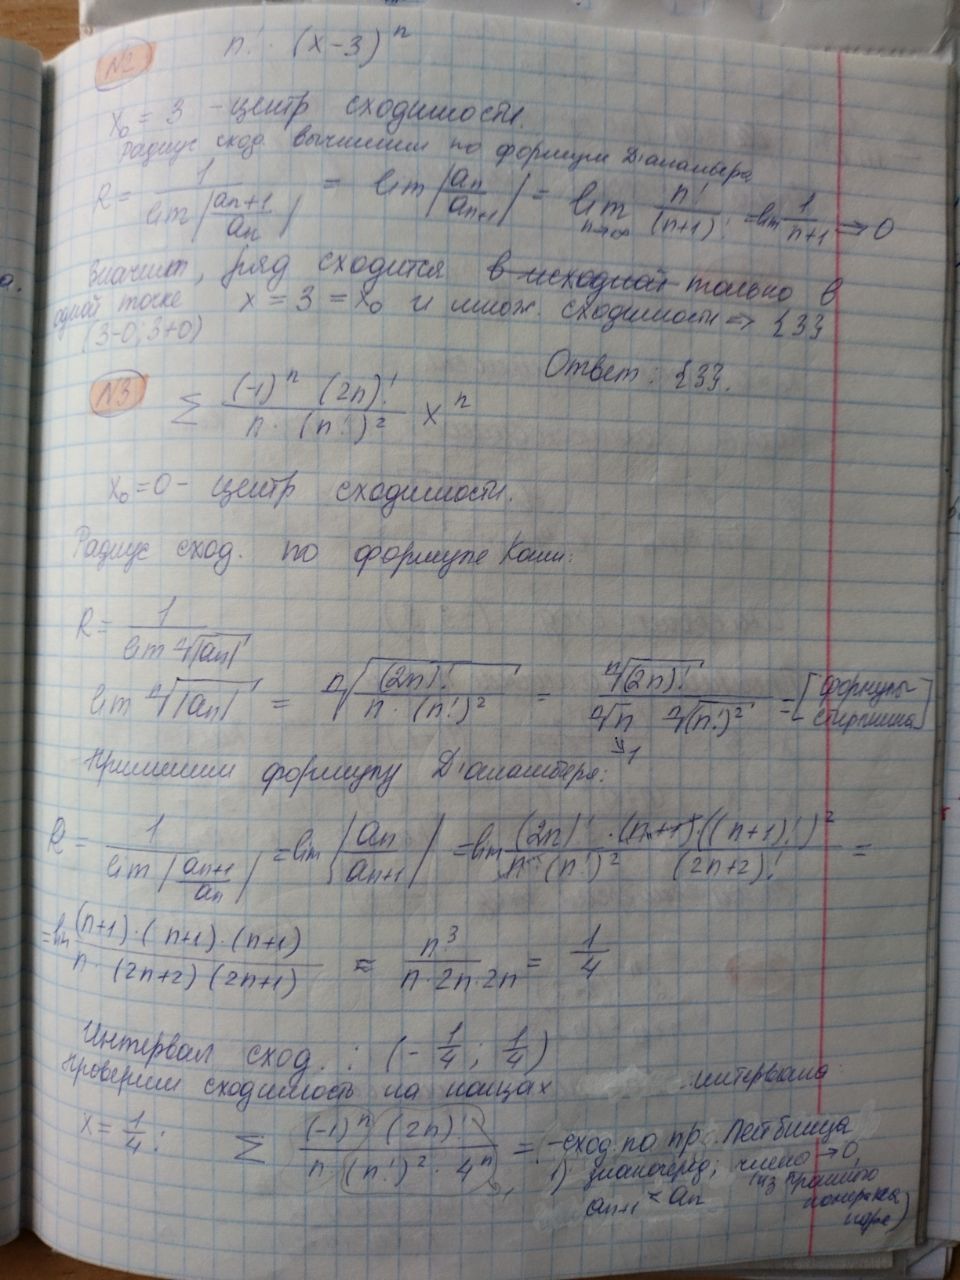 №2 n! · (x-3)^n
x₀ = 3 - центр сходимости.
Радиус сход. вычислим по формуле Д'аламбера
R = 1 / lim |aₙ₊₁/aₙ| = lim |aₙ/aₙ₊₁| = lim n→∞ n!/(n+1)! = lim 1/(n+1) → 0
Значит, ряд сходится в исходной только в
одной точке x = 3 = x₀ и множ. сходимости => {3}
(3-0; 3+0)
Ответ: {3}.
№3 Σ (-1)^n (2n)! / (n · (n!)²) x^n
x₀ = 0 - центр сходимости.
Радиус сход. по формуле Коши:
R = 1 / lim ⁿ√|aₙ|
lim ⁿ√|aₙ| = ⁿ√((2n)! / (n · (n!)²)) = ⁿ√(2n)! / (ⁿ√n ⁿ√(n!)²) = [формулы Стирлинга]
↓1
Применим формулу Д'аламбера:
R = 1 / lim |aₙ₊₁/aₙ| = lim |aₙ/aₙ₊₁| = lim (2n)! · (n+1) · ((n+1)!)² / (n · (n!)² (2n+2)!) =
= lim (n+1) · (n+1) · (n+1) / (n · (2n+2) (2n+1)) ≈ n³ / (n · 2n · 2n) = 1/4
Интервал сход.: (-1/4; 1/4)
Проверим сходимость на концах интервала:
x = 1/4: Σ (-1)^n (2n)! / (n · (n!)² · 4^n) = - сход. по пр. Лейбница
1) знакочеред; число → 0,
aₙ₊₁ < aₙ (из прошлого
номера на
паре)